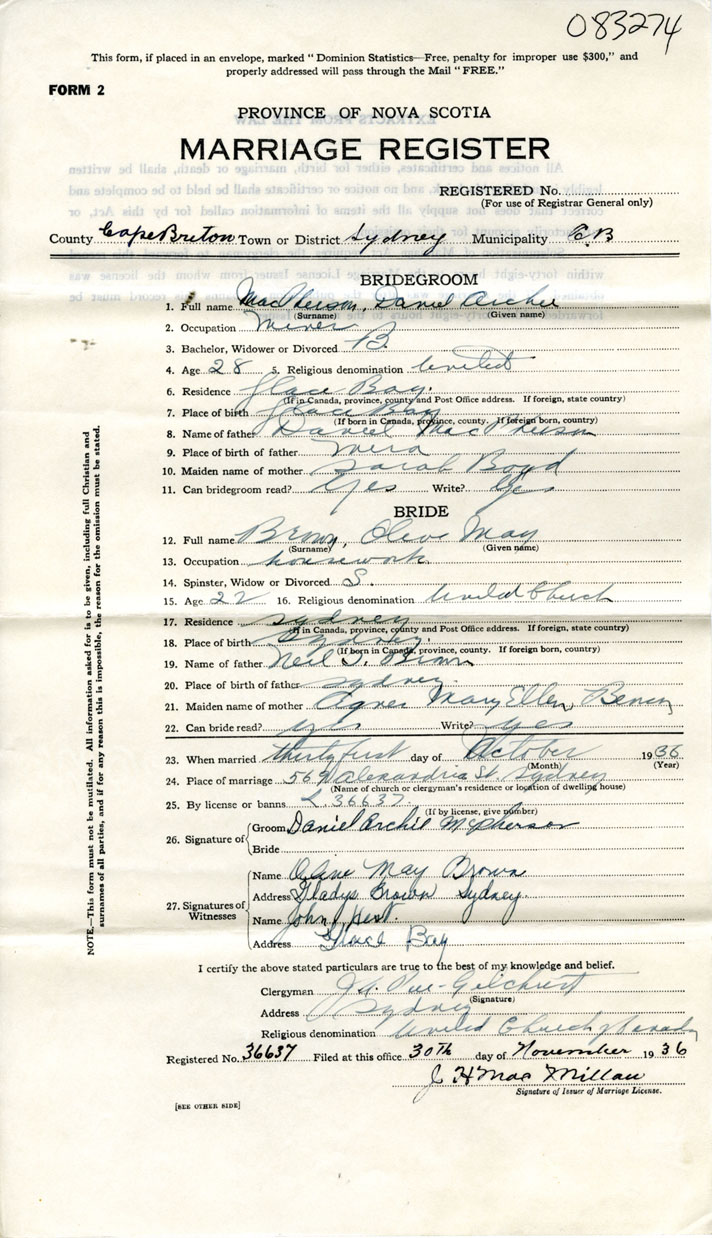 083274
This form, if placed in an envelope, marked "Dominion Statistics—Free, penalty for improper use $300," and
properly addressed will pass through the Mail "FREE."
FORM 2
PROVINCE OF NOVA SCOTIA
MARRIAGE REGISTER
REGISTERED No.
(For use of Registrar General only)
County Cape Breton Town or District Sydney Municipality C.B
BRIDEGROOM
1. Full name MacPherson, Daniel Archie
(Surname) (Given name)
2. Occupation Miner
3. Bachelor, Widower or Divorced B.
4. Age 28 5. Religious denomination United
6. Residence Glace Bay.
(If in Canada, province, county and Post Office address. If foreign, state country)
7. Place of birth Glace Bay
(If born in Canada, province, county. If foreign born, country)
8. Name of father Daniel MacPherson
9. Place of birth of father Mira
10. Maiden name of mother Sarah Boyd
11. Can bridegroom read? Yes Write? Yes
BRIDE
12. Full name Brown, Olive May
(Surname) (Given name)
13. Occupation housework
14. Spinster, Widow or Divorced S.
15. Age 22 16. Religious denomination United Church
17. Residence Sydney
(If in Canada, province, county and Post Office address. If foreign, state country)
18. Place of birth Sydney.
(If born in Canada, province, county. If foreign born, country)
19. Name of father Neil S. Brown
20. Place of birth of father Sydney.
21. Maiden name of mother Agnes Mary Ellen
22. Can bride read? yes Write? yes
23. When married thirty first day of October 1936
(Month) (Year)
24. Place of marriage 569 Alexandria St. Sydney
(Name of church or clergyman's residence or location of dwelling house)
25. By license or banns L. 36637
(If by license, give number)
26. Signature of
Groom Daniel Archie McPherson
Bride
27. Signatures of Witnesses
Name Olive May Brown
Address Gladys Brown Sydney.
Name John
Address Glace Bay
I certify the above stated particulars are true to the best of my knowledge and belief.
Clergyman Gilchrist
(Signature)
Address Sydney
Religious denomination United Church of Canada
Registered No. 36637 Filed at this office 30th day of November 1936
J H MacMillan
Signature of Issuer of Marriage License.
[SEE OTHER SIDE]
NOTE.—This form must not be mutilated. All information asked for is to be given, including full Christian and
surnames of all parties, and if for any reason this is impossible, the reason for the omission must be stated.